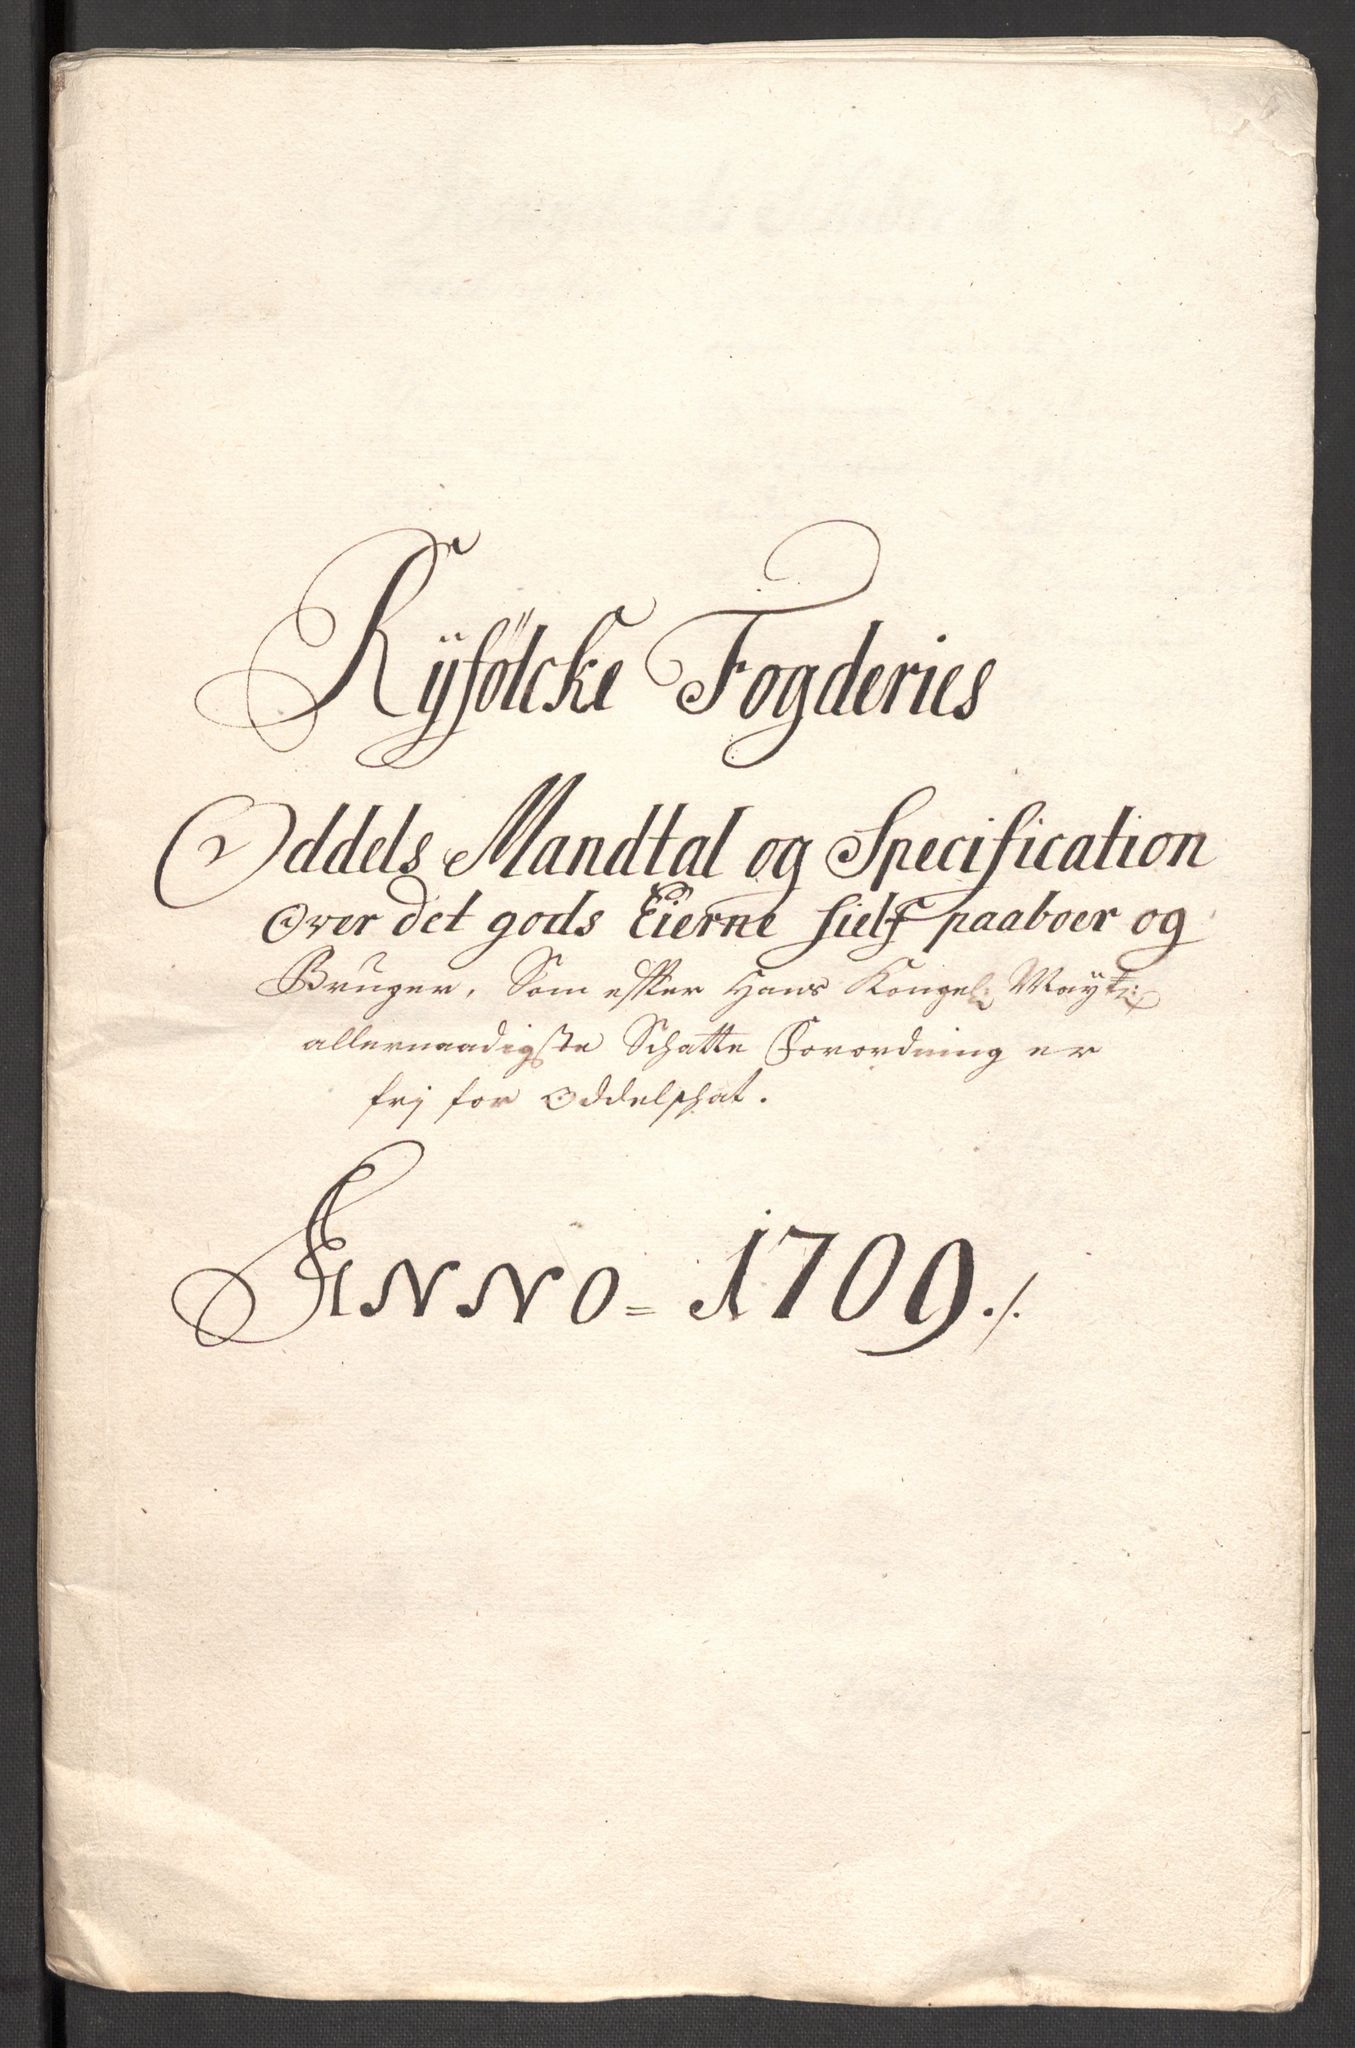 Rÿfölcke Fogderies
Oddels Mandtal og Specification
over det gods Eierne sielf paaboer og
Bruger, Som efter Hans Kongel: Mayt:
allernaadigste Schatte Forordning er
frj for oddelschat.
ANNO = 1709./.